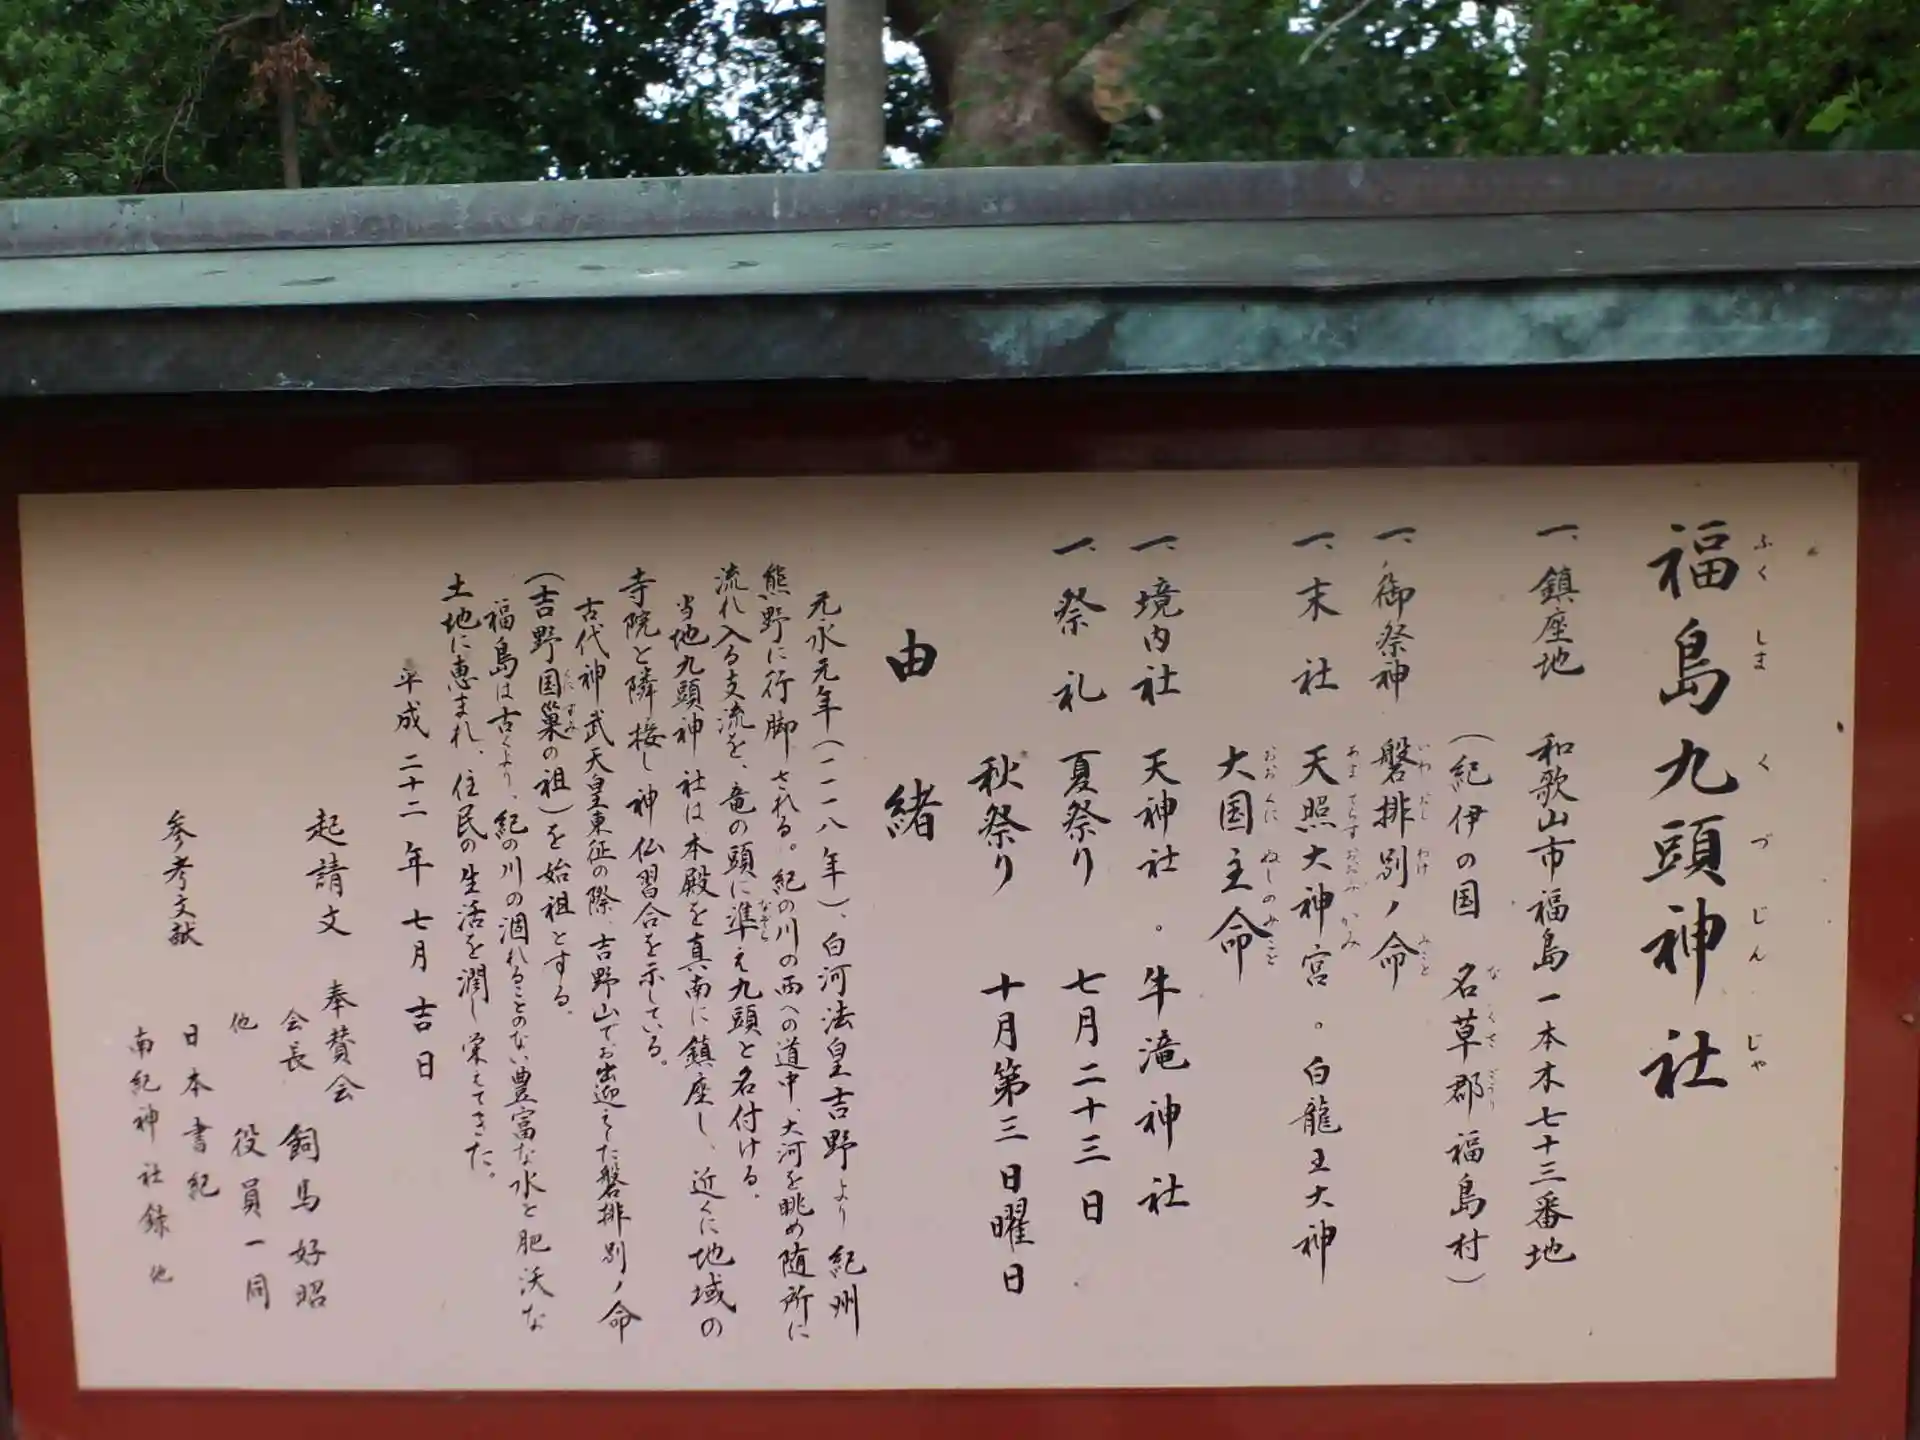 福島九頭神社
ふくしまくづじんじゃ
一、鎮座地 和歌山市福島一本木七十三番地
（紀伊の国 名草郡福島村）
なくさごうり
一、御祭神 磐排別ノ命
いわおしわけ みこと
一、末社 天照大神宮。白龍王大神
あまてらすおおみかみ
大国主命
おおくにぬしのみこと
一、境内社 天神社。牛滝神社
一、祭礼 夏祭り 七月二十三日
秋祭り 十月第三日曜日
由緒
元永元年（一一一八年）、白河法皇吉野より紀州
熊野に行脚される。紀の川の西への道中、大河を眺め随所に
流れ入る支流を、竜の頭に準え九頭と名付ける。
なぞら
当地九頭神社は本殿を真南に鎮座し、近くに地域の
寺院と隣接し神仏習合を示している。
古代神武天皇東征の際、吉野山でお出迎えした磐排別ノ命
（吉野国巣の祖）を始祖とする。
くにすみ
福島は古くより、紀の川の涸れることのない豊富な水と肥沃な
土地に恵まれ、住民の生活を潤し栄えてきた。
平成二十二年七月吉日
起請文 奉賛会
会長 飼馬好昭
他 役員一同
参考文献 日本書紀
南紀神社録 他